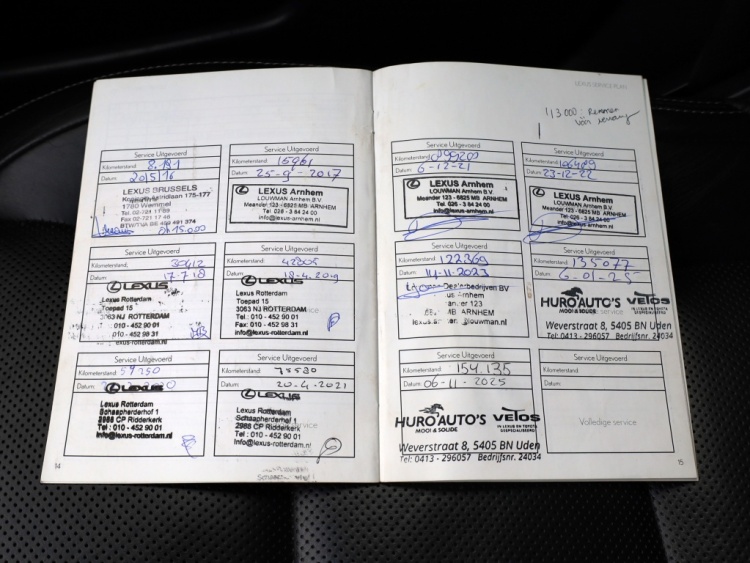 Service Uitgevoerd
Kilometerstand: 8.181
Datum: 20/5/16
LEXUS BRUSSELS
175-177
1780 Wemmel
Tel. 02-721 17
Fax. 02-721 17 48
Service Uitgevoerd
Kilometerstand: 15961
Datum: 25-9-2017
LEXUS Arnhem
LOUWMAN Arnhem B.V.
Meander 123 - 6825 MB ARNHEM
Tel: 026 - 3 84 24 00
info@lexus-arnhem.nl
Service Uitgevoerd
Kilometerstand: 30412
Datum: 17-7-18
LEXUS
Lexus Rotterdam
Toepad 15
3063 NJ ROTTERDAM
Tel: 010 - 452 90 01
010 - 452 98 31
Service Uitgevoerd
Kilometerstand: 42805
Datum: 18-4-2019
LEXUS
Lexus Rotterdam
Toepad 15
3063 NJ ROTTERDAM
Tel: 010 - 452 90 01
Fax: 010 - 452 98 31
info@lexus-rotterdam.nl
Service Uitgevoerd
Kilometerstand: 57250
Datum:
LEXUS
Lexus Rotterdam
Schaapherderhof 1
2988 CP Ridderkerk
Tel : 010 - 452 90 01
info@lexus-rotterdam.nl
Service Uitgevoerd
Kilometerstand: 75530
Datum: 20-4-2021
LEXUS
Lexus Rotterdam
Schaapherderhof 1
2988 CP Ridderkerk
Tel : 010 - 452 90 01
info@lexus-rotterdam.nl
14
LEXUS SERVICE PLAN
113000: Remmen
vóór
Service Uitgevoerd
Kilometerstand: 099200
Datum: 6-12-21
LEXUS Arnhem
LOUWMAN Arnhem B.V.
Meander 123 - 6825 MB ARNHEM
Tel: 026 - 3 84 24 00
info@lexus-arnhem.nl
Service Uitgevoerd
Kilometerstand: 106489
Datum: 23-12-22
LEXUS Arnhem
LOUWMAN Arnhem B.V.
Meander 123 - 6825 MB ARNHEM
Tel: 026 - 3 84 24 00
info@lexus-arnhem.nl
Service Uitgevoerd
Kilometerstand: 122369
Datum: 14-11-2023
Dealerbedrijven BV
Arnhem
123
MB ARNHEM
Service Uitgevoerd
Kilometerstand: 135077
Datum: 6-01-25
HURO AUTO'S VETOS
MOOI & SOLIDE
Weverstraat 8, 5405 BN Uden
Tel: 0413 - 296057 Bedrijfsnr. 24034
Service Uitgevoerd
Kilometerstand: 154.135
Datum: 06-11-2025
HURO AUTO'S VETOS
MOOI & SOLIDE
Weverstraat 8, 5405 BN Uden
Tel: 0413 - 296057 Bedrijfsnr. 24034
Service Uitgevoerd
Kilometerstand:
Datum:
Volledige service
15